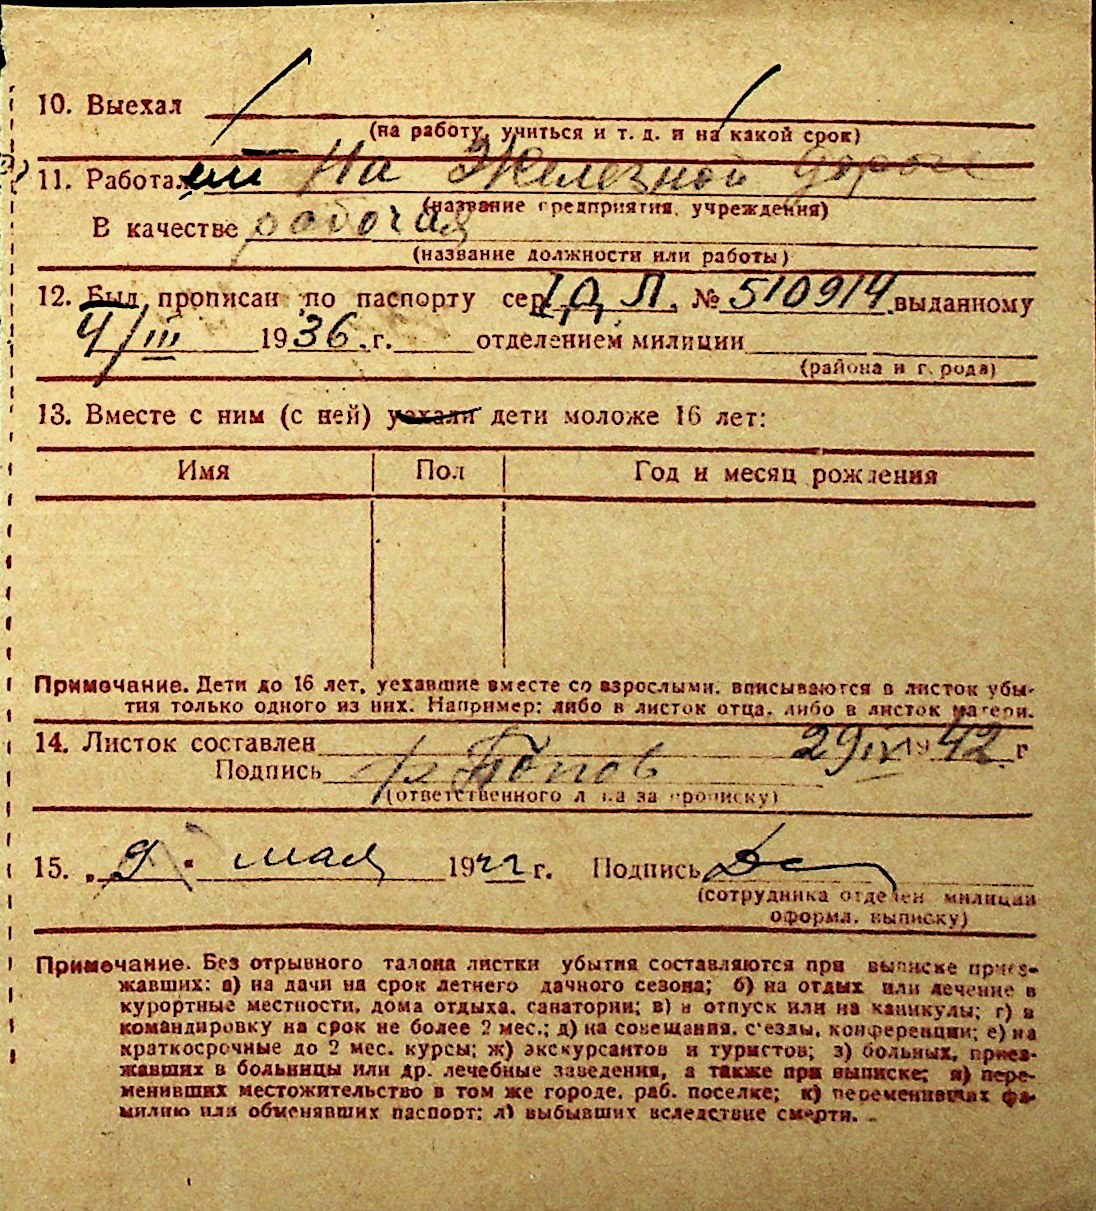 10. Выехал
(на работу, учиться и т. д. и на какой срок)
11. Работал На Железной дороге
(название предприятия, учреждения)
В качестве рабочая
(название должности или работы)
12. Был прописан по паспорту сер. № 510914 выданному
4/III 1936 г. отделением милиции
(района и города)
13. Вместе с ним (с ней) уехали дети моложе 16 лет:
Имя Пол Год и месяц рождения
Примечание. Дети до 16 лет, уехавшие вместе со взрослыми, вписываются в листок убы-
тия только одного из них. Например: либо в листок отца, либо в листок матери.
14. Листок составлен 29 IV 1942 г
Подпись Попов
(ответственного лица за прописку)
15. „9" мая 1942 г. Подпись
(сотрудника отделен милиции
оформл. выписку)
Примечание. Без отрывного талона листки убытия составляются при выписке приез-
жавших: а) на дачи на срок летнего дачного сезона; б) на отдых или лечение в
курортные местности, дома отдыха, санатории; в) в отпуск или на каникулы; г) в
командировку на срок не более 2 мес.; д) на совещания, с'езды, конференции; е) на
краткосрочные до 2 мес. курсы; ж) экскурсантов и туристов; з) больных, приез-
жавших в больницы или др. лечебные заведения, а также при выписке; и) пере-
менивших местожительство в том же городе, раб. поселке; к) переменивших фа-
милию или обменявших паспорт; л) выбывших вследствие смерти.